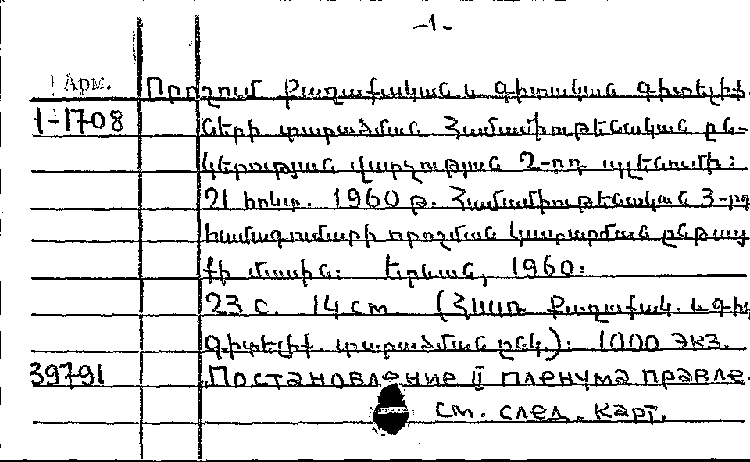 -1-
Арм.
Որոշում քաղաքական և գիտական գիտելիք
1-1708
ների տարածման Համամիութենական ըն-
կերության վարչության 2-րդ պլենումի:
21 հոկտ. 1960 թ. Համամիութենական 3-րդ
համագումարի որոշման կատարման ընթաց
քի մասին: Երևան, 1960:
23 с. 14 см (ՀՍՍՌ քաղաքակ. և գիտ
գիտելիք. տարածման ընկ.): 1000 экз.
39791
Постановление II пленума правле-
см. след. карт.